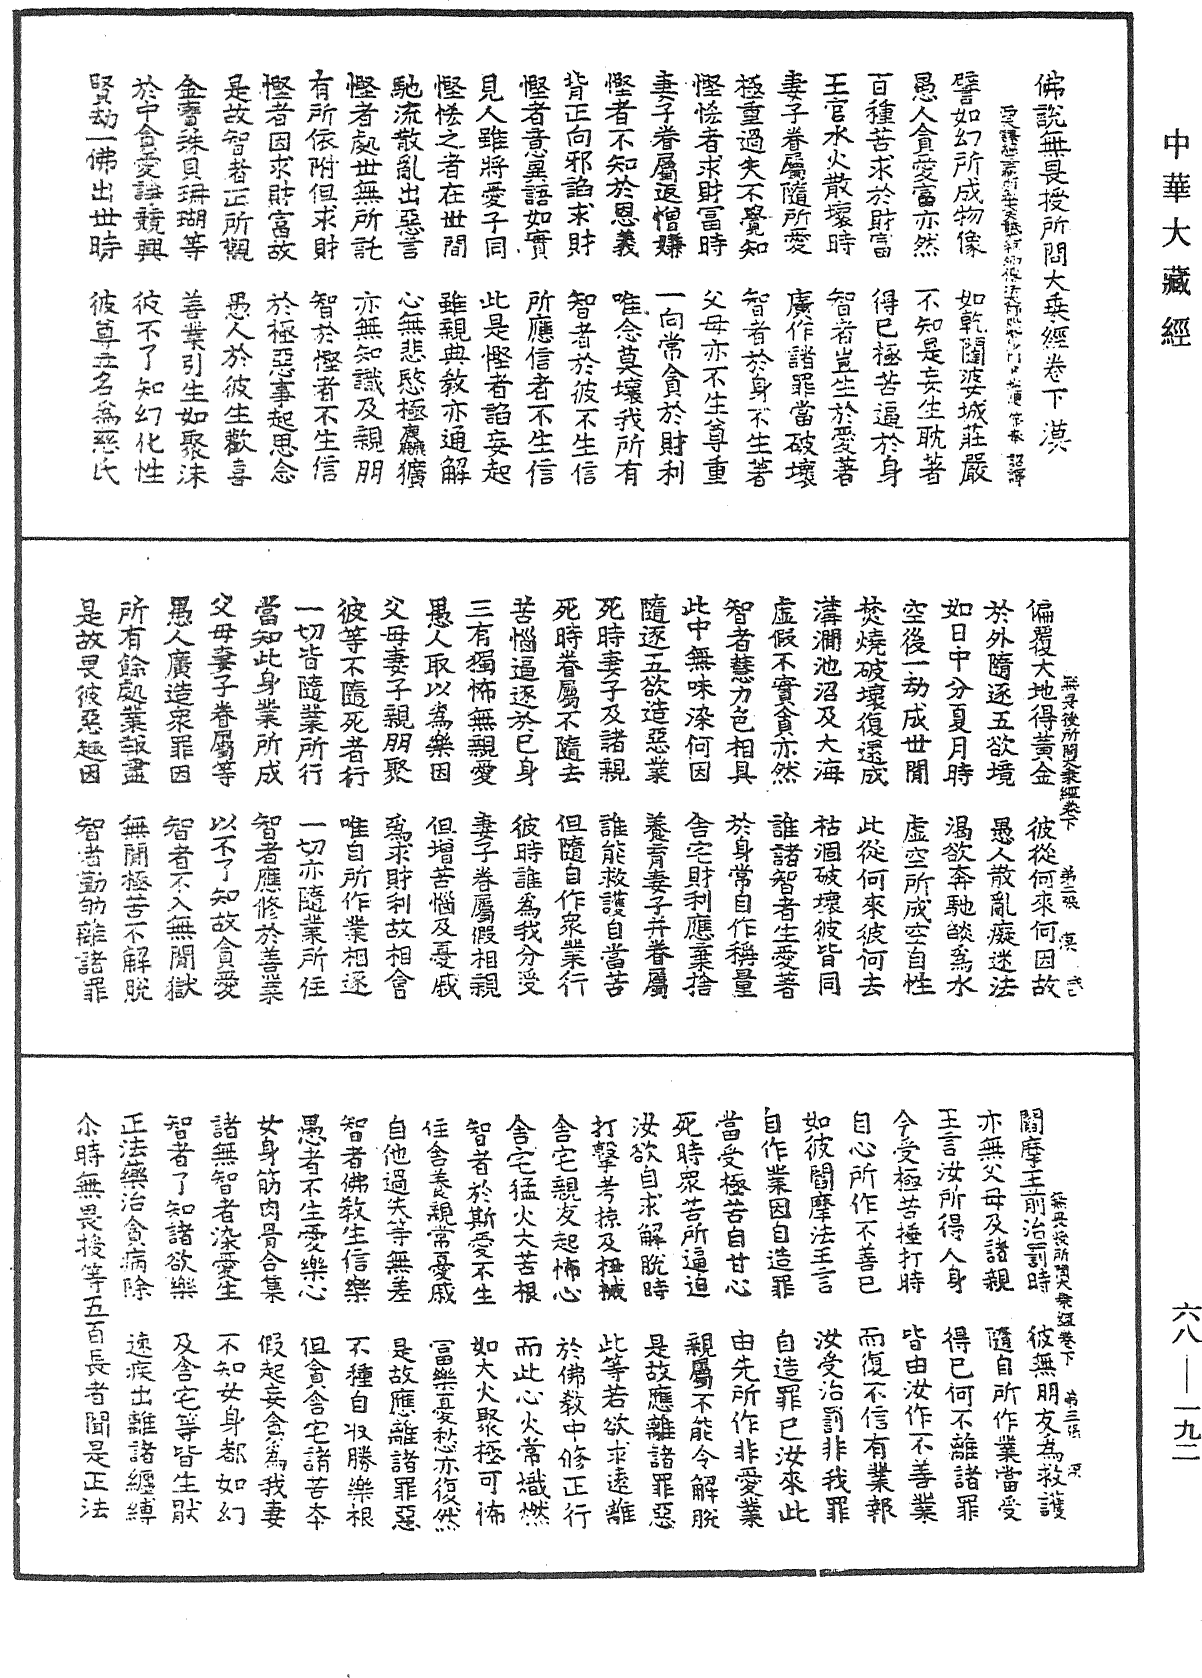 中華大藏經
佛說無畏授所問大乘經卷下 漠
譬如幻所成物像 如乾闥婆城莊嚴
愚人貪愛富亦然 不知是妄生耽著
百種苦求於財富 得已極苦逼於身
王官水火散壞時 智者豈生於愛著
妻子眷屬隨所愛 廣作諸罪當破壞
極重過失不覺知 智者於身不生著
慳悋者求財富時 父母亦不生尊重
妻子眷屬返憎嫌 一向常貪於財利
慳者不知於恩義 唯念莫壞我所有
背正向邪諂求財 智者於彼不生信
慳者意異語如實 所應信者不生信
見人雖將愛子同 此是慳者諂妄起
慳悋之者在世間 雖親典教亦通解
馳流散亂出惡言 心無悲愍極麤獷
慳者處世無所託 亦無知識及親朋
有所依附但求財 智於慳者不生信
慳者因求財富故 於極惡事起思念
是故智者正所觀 愚人於彼生歡喜
金寶珠貝珊瑚等 善業引生如聚沫
於中貪愛諍競興 彼不了知幻化性
賢劫一佛出世時 彼尊立名為慈氏
無畏授所問大乘經卷下 第二張 漠
偏覆大地得黃金 彼從何來何因故
於外隨逐五欲境 愚人散亂癡迷法
如日中分夏月時 渴欲奔馳燄為水
空後一劫成世間 虛空所成空自性
焚燒破壞復還成 此從何來彼何去
溝澗池沼及大海 枯涸破壞彼皆同
虛假不實貪亦然 誰諸智者生愛著
智者慧力色相具 於身常自作稱量
此中無味染何因 舍宅財利應棄捨
隨逐五欲造惡業 養育妻子并眷屬
死時妻子及諸親 誰能救護自當苦
死時眷屬不隨去 但隨自作眾業行
苦惱逼逐於己身 彼時誰為我分受
三有獨怖無親愛 妻子眷屬假相親
愚人取以為樂因 但增苦惱及憂戚
父母妻子親朋聚 為求財利故相會
彼等不隨死者行 唯自所作業相逐
一切皆隨業所行 一切亦隨業所住
當知此身業所成 智者應修於善業
父母妻子眷屬等 以不了知故貪愛
愚人廣造眾罪因 智者不入無間獄
所有餘殃業報盡 無間極苦不解脫
是故畏彼惡趣因 智者勤劬離諸罪
無畏授所問大乘經卷下 第三張 漠
閻摩王前治罰時 彼無朋友為救護
亦無父母及諸親 隨自所作業當受
王言汝所得人身 得已何不離諸罪
今受極苦捶打時 皆由汝作不善業
自心所作不善已 而復不信有業報
如彼閻摩法王言 汝受治罰非我罪
自作業因自造罪 自造罪已汝來此
當受極苦自甘心 由先所作非愛業
死時眾苦所逼迫 親屬不能令解脫
汝欲自求解脫時 是故應離諸罪惡
打擊考掠及杻械 此等若欲求遠離
舍宅親友起怖心 於佛教中修正行
舍宅猛火大苦根 而此心火常熾燃
智者於斯愛不生 如大火聚極可怖
住舍養親常憂戚 富樂憂愁亦復然
自他過失等無差 是故應離諸罪惡
智者佛教生信樂 不種自收勝樂根
愚者不生愛樂心 但貪舍宅諸苦本
女身筋肉骨合集 假起妄貪為我妻
諸無智者染愛生 不知女身都如幻
智者了知諸欲樂 及舍宅等皆生厭
正法藥治貪病除 速疾出離諸纏縛
尒時無畏授等五百長者聞是正法
六八—一九二